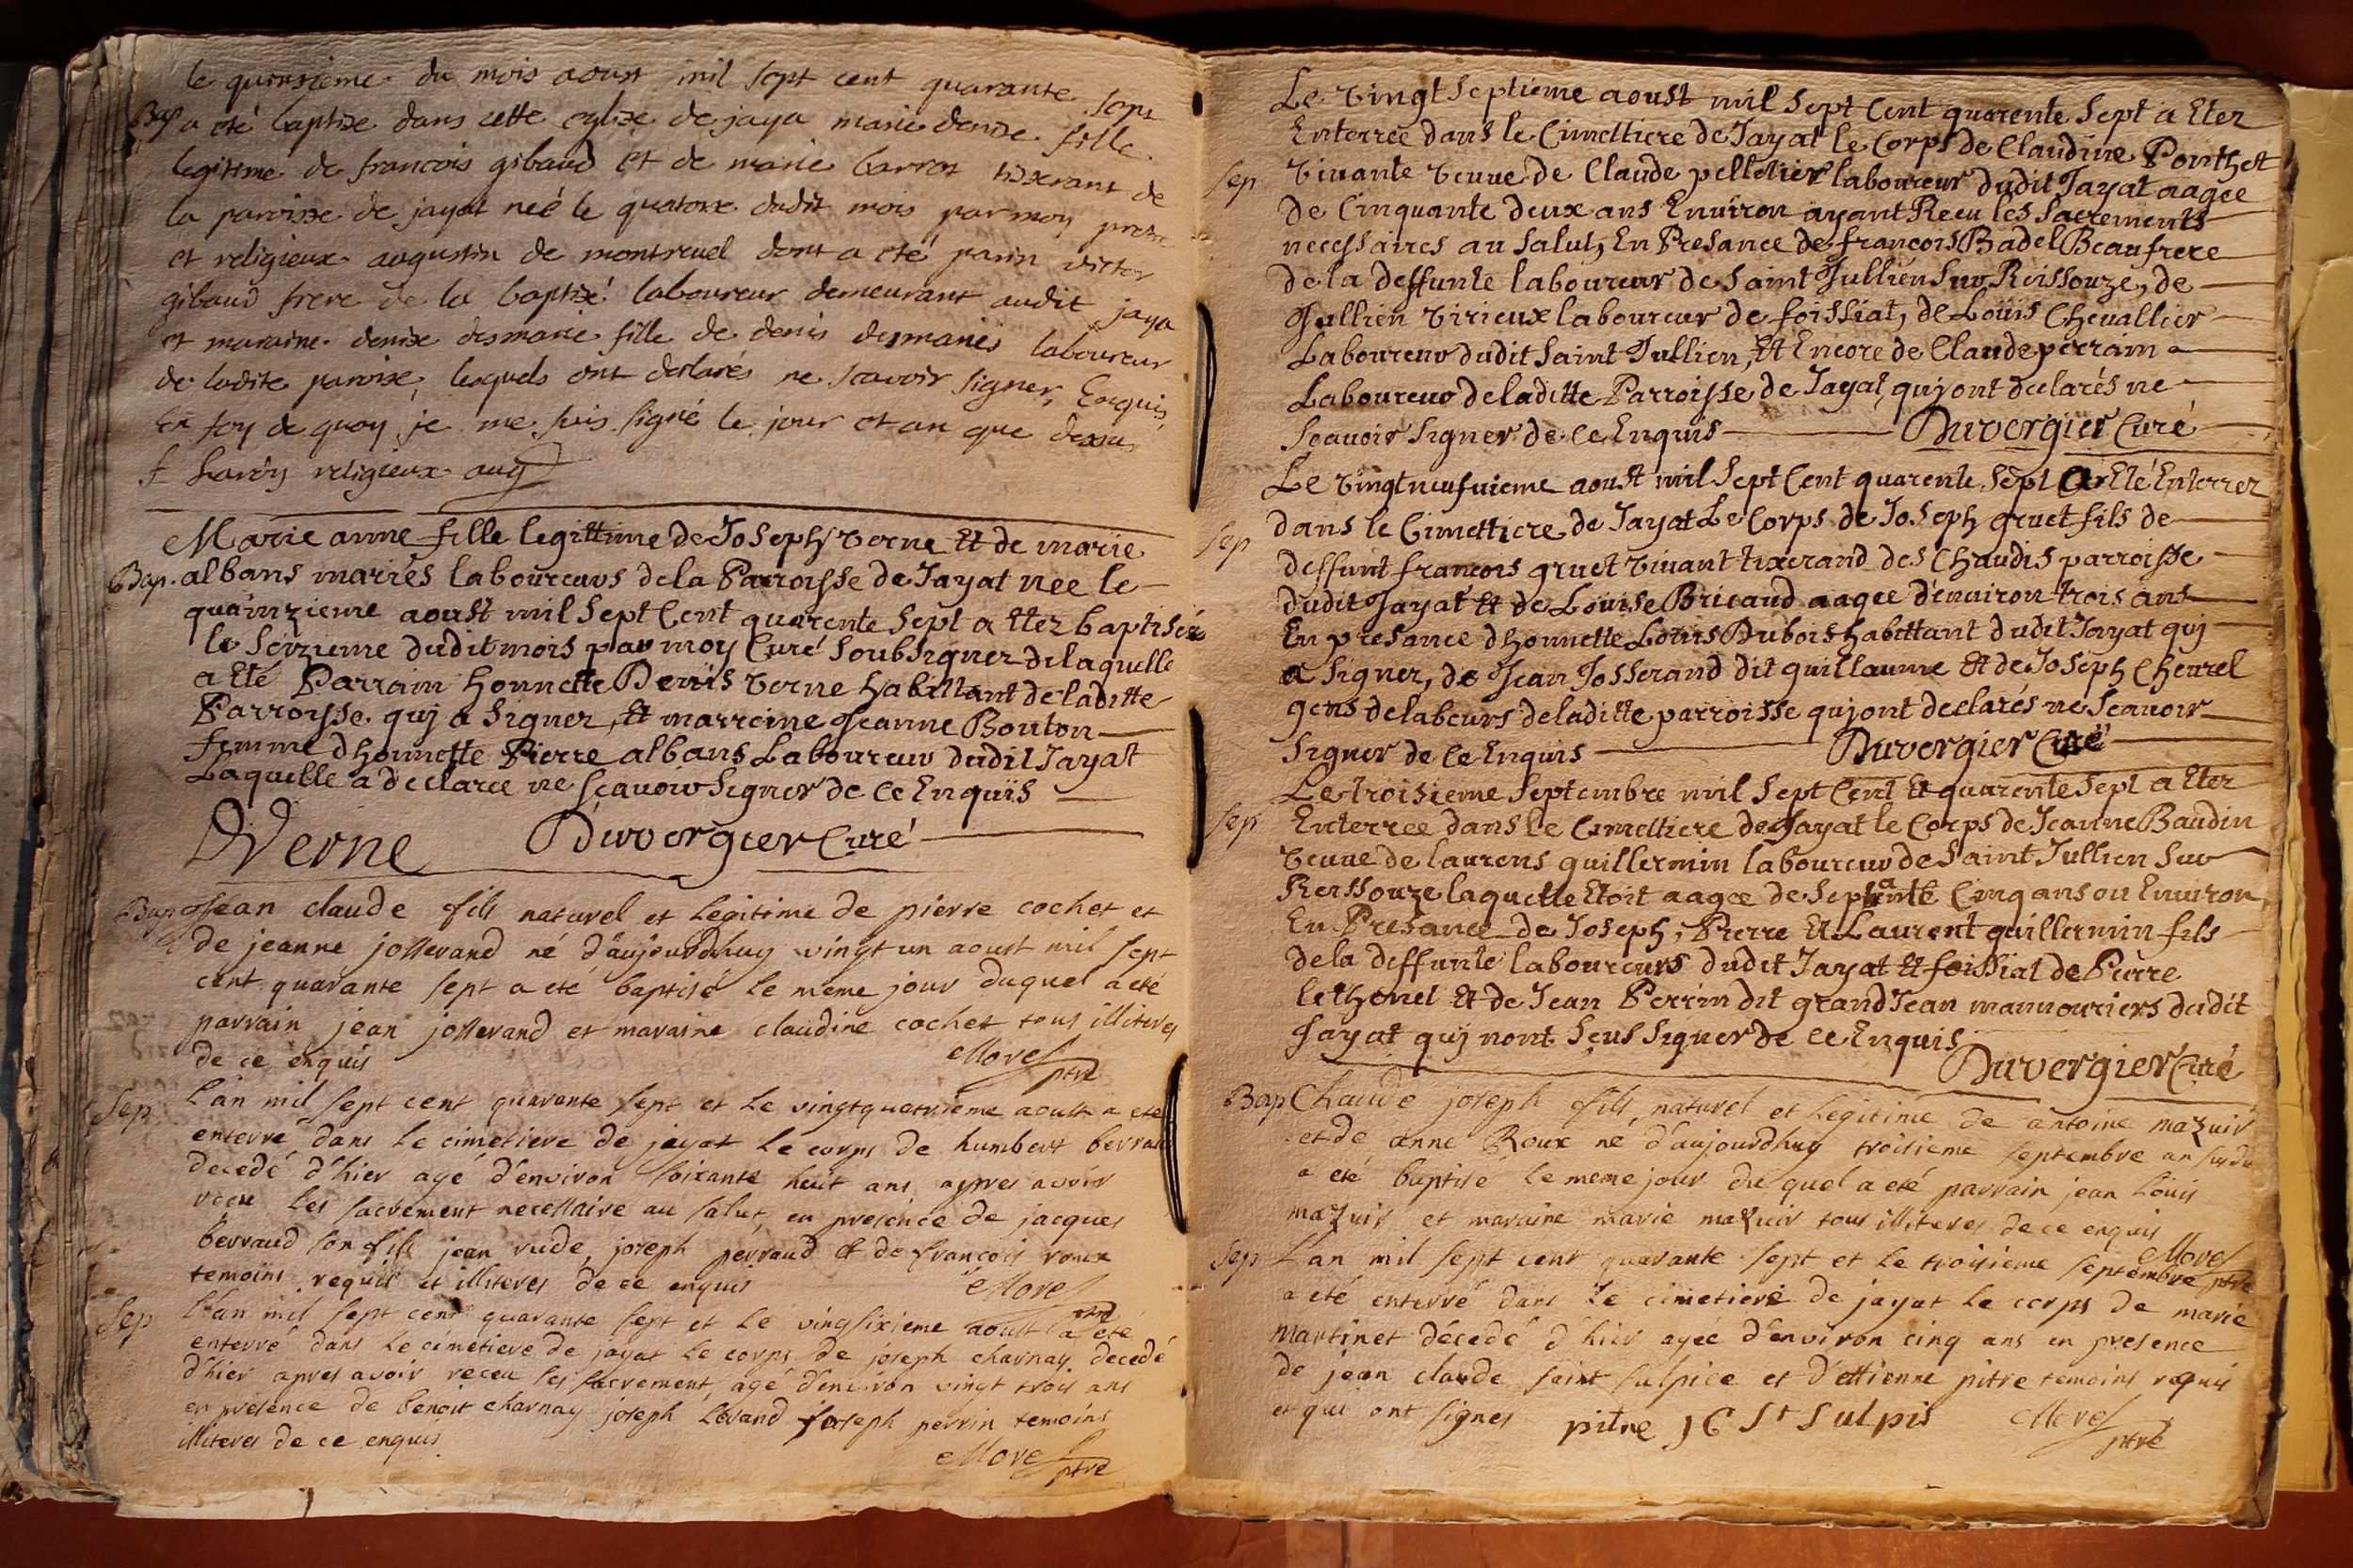 le quinsieme du mois aoust mil sept cent quarante sept
Bap a eté baptise dans cette eglise de jaya marie denise fille
legitime de francois gibaud et de marie barron tixerant de
la paroisse de jayat neé le quatorse dudit mois par moy pretre
et religieux augustin de montreuel dont a eté parin victor
gibaud frere de la baptisé laboureur demeurant audit jaya
et maraine denise desmarie fille de denis desmaries laboureur
de ladite paroise, lesquels ont declarés ne scavoir signer, Enquis,
en foy de quoy je me suis signé le jour et an que dessus
f hardy religieux aug
Marie anne fille legittime de Joseph Verne Et de marie
Bap. albans mariés laboureurs de la Parroisse de Jayat née le
quainzieme aoust mil Sept Cent quarente Sept a Etez baptisée
le Seizieme dudit mois par moy Curé Soubsigner de laquelle
a Eté Parrain honnette Denis Verne habittant de laditte
Parroisse quj a Signer, Et marreine Jeanne Bouton
femme dhonnette Pierre albans Laboureur dudit Jayat
Laquelle a declaree ne Scavoir Signer de ce Enquiis
DVerne Duvergier Curé
Bap Jean claude fils naturel et legitime de pierre cochet et
de jeanne josserand né d'aujourdhuy vingt un aoust mil sept
cent quarante sept a eté baptisé le meme jour duquel a eté
parrain jean josserand et maraine claudine cochet tous illiteres
de ce enquis Morel ptre
Sep L'an mil sept cent quarante sept et le vingtquatrieme aoust a eté
enterré dans le cimetiere de jayat le corps de humbert berraud
decedé d'hier agé d'environ soixante huit ans apres avoir
receu les sacrement necessaire au salut, en presence de jacques
berraud son fils jean rude, joseph perraud et de francois roux
temoins requis et illiteres de ce enquis Morel ptre
Sep L'an mil sept cent quarante sept et le vingsixieme aoust a eté
enterré dans le cimetiere de jayat le corps de joseph charnay decedé
d'hier apres avoir receu les sacrement, agé d'environ vingt trois ans
en presence de benoit charnay joseph Levrand joseph perrin temoins
illiteres de ce enquis Morel ptre
Le Vingt Septieme aoust mil Sept Cent quarente Sept a Etez
Enterree dans le Cimettiere de Jayat le Corps de Claudine Ponthet
Sep Vivante Veuve de Claude pelletier laboureur dudit Jayat aagee
de Cinquante deux ans Environ ayant Recu les Sacrements
necessaires au Salut, En Presance de francois Badel Beaufrere
de la deffunte laboureur de Saint Jullien Sur Reissouze, de
Jullien Virieux laboureur de foissiat, de Loüis Chevallier
Laboureur dudit Saint Jullien, Et Encore de Claude perram
Laboureur de laditte Parroisse de Jayat, quj ont declarés ne
Scavoir Signer de ce Enquis Duvergier Curé
Le Vingt neufvieme aoust mil Sept Cent quarente Sept a Eté Enterrer
Sep dans le Cimettiere de Jayat Le Corps de Joseph gruet fils de
deffunt francois gruet Vivant tixerand des Chaudis parroisse
dudit Jayat Et de Loüise Bricaud aagee d'environ trois ans
En presance dhonnette Loüis Dubois habittant dudit Jayat quj
a Signer, de Jean Josserand dit guillaume Et de Joseph Chevrel
gens de labeurs de laditte parroisse quj ont declarés ne Scavoir
Signer de ce Enquis Duvergier Curé
Le troisieme Septembre mil Sept Cent Et quarente Sept a Etez
Sep Enterree dans le Cimettiere de Jayat le Corps de Jeanne Baudin
Veuve de laurens guillermin laboureur de Saint Jullien Sur
Reissouze laquelle Etoit aagee de Septante Cinq ans ou Environ,
En Presance de Joseph, Pierre Et Laurent guillermin fils
de la deffunte laboureurs dudit Jayat Et foissiat de Pierre
lethenel Et de Jean Perrin dit grand Jean manouvriers dudit
Jayat quj nont Sceus Signer de ce Enquis
Duvergier Curé
Bap Claude joseph fils naturel et legitime de antoine mazuir
et de anne Roux né d'aujourdhuy troisieme septembre an susdit
a eté baptisé le meme jour du quel a eté parrain jean Loüis
mazuir et maraine marie mazuir tous illiteres de ce enquis
Morel ptre
Sep L'an mil sept cent quarante sept et le troisieme septembre
a eté enterré dans le cimetiere de jayat le corps de marie
martinet décedé d'hier agée d'environ cinq ans en presence
de jean claude saint sulpice et d'ettienne pitre temoins requis
et qui ont signes pitre JC St Sulpis Morel ptre